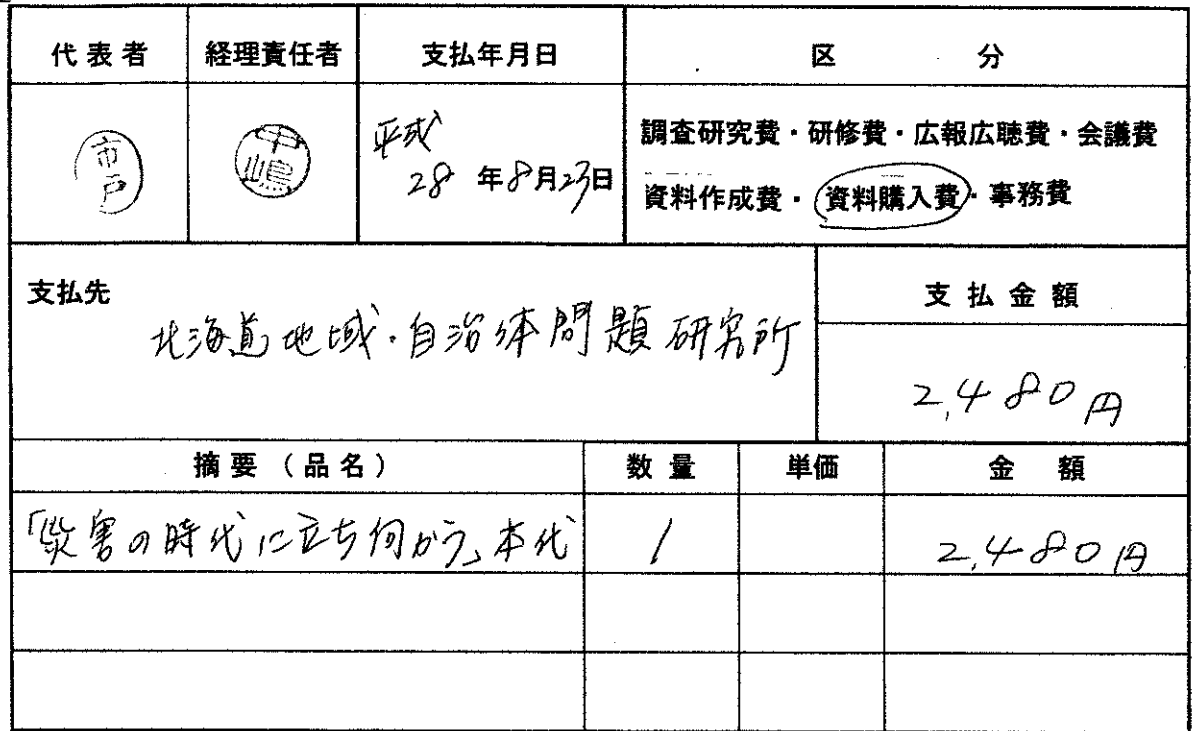 代表者 経理責任者 支払年月日 区 分
市戸 中嶋 平成28年8月23日 調査研究費・研修費・広報広聴費・会議費
資料作成費・資料購入費・事務費
支払先 支払金額
北海道地域・自治体問題研究所 2,480円
摘要(品名) 数量 単価 金額
「災害の時代に立ち向かう」本代 1 2,480円